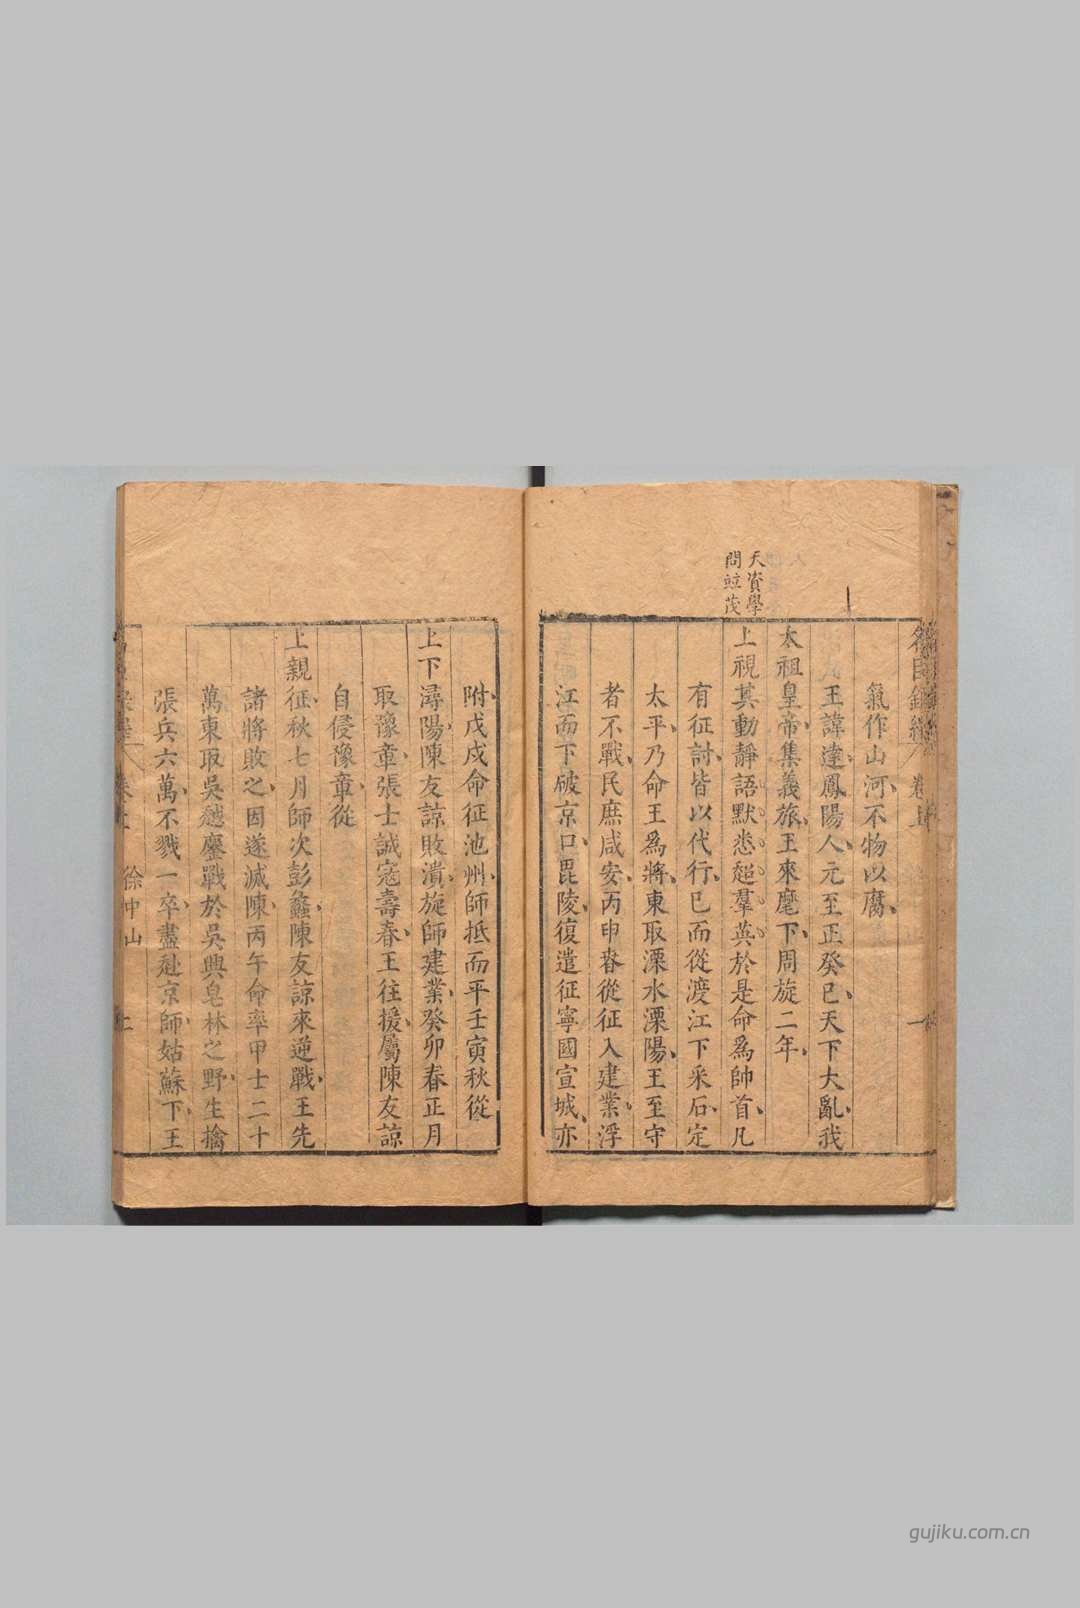 天資學
問竝茂
氣作山河不物以腐
王諱達鳳陽人元至正癸巳天下大亂我
太祖皇帝集義旅王來麾下周旋二年
上視其動靜語默悉超羣英於是命爲帥首凡
有征討皆以代行已而從渡江下采石定
太平乃命王爲將東取溧水溧陽王至守
者不戰民庶咸安丙申春從征入建業浮
江而下破京口毘陵復遣征寧國宣城亦
附戊戌命征池州師抵而平壬寅秋從
上下潯陽陳友諒敗潰旋師建業癸卯春正月
取豫章張士誠寇壽春王往援屬陳友諒
自侵豫章從
上親征秋七月師次彭蠡陳友諒來逆戰王先
諸將敗之因遂滅陳丙午命率甲士二十
萬東取吳越鏖戰於吳興皂林之野生擒
張兵六萬不戮一卒盡赴京師姑蘇下王
徐中山
gujiku.com.cn